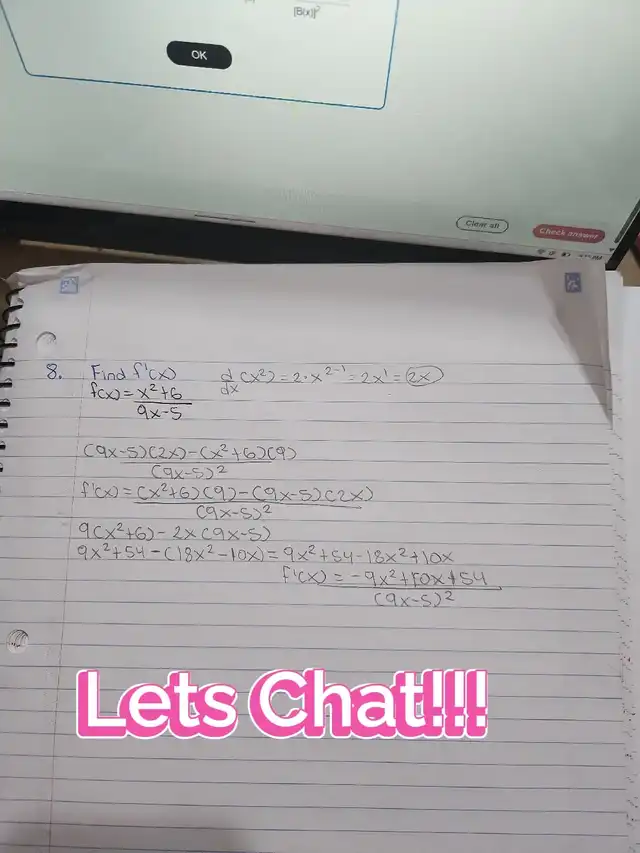 [B(x)]²
OK
Clear all
Check answer
8. Find f'(x) d/dx (x²) = 2·x²⁻¹ = 2x¹ = 2x
f(x) = x²+6
9x-5
(9x-5)(2x)-(x²+6)(9)
(9x-5)²
f'(x) = (x²+6)(9)-(9x-5)(2x)
(9x-5)²
9(x²+6)-2x(9x-5)
9x²+54-(18x²-10x)=9x²+54-18x²+10x
f'(x) = -9x²+10x+54
(9x-5)²
Lets Chat!!!